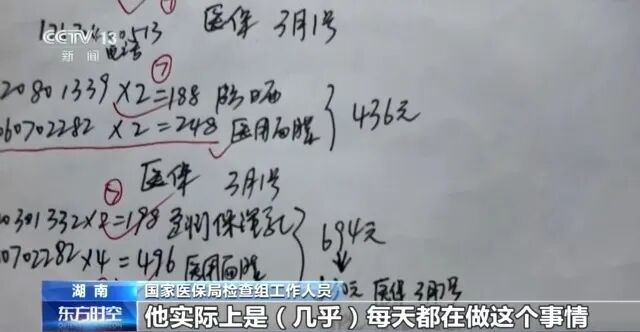 CCTV 13
新闻
513
医保 3月1号
⑦
20801339 X2=188 防晒
060702282 X2=248 医用面膜
436元
医保 3月1号
0301332X2=198
0702282X4=496 医用面膜
694元
医保 3月1号
湖南
东方时空
国家医保局检查组工作人员
他实际上是（几乎）每天都在做这个事情